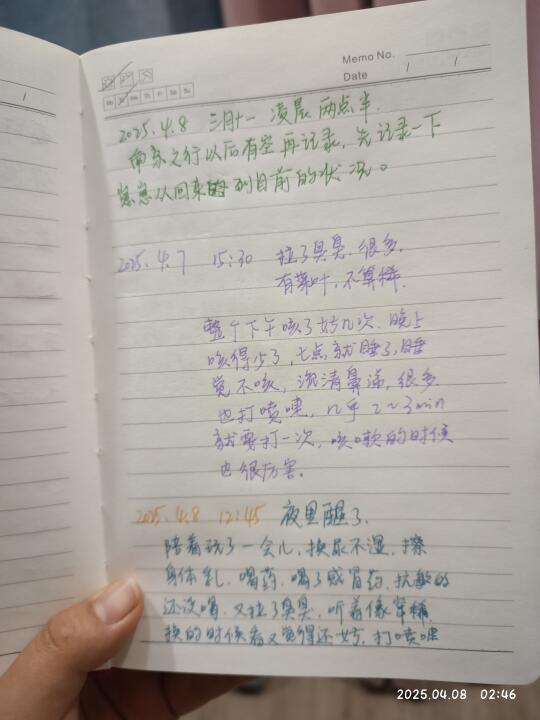 Memo No.
Date / /
Mo Tu We Th Fr Sa Su
/
2025.4.8 三月十一 凌晨两点半.
南京之行以后有空再记录，先记录一下
崽崽从回来到目前的状况。
2025.4.7 15:30 拉了臭臭，很多，
有菜叶，不算稀.
整个下午咳了好几次，晚上
咳得少了，七点就睡了，睡
觉不咳，流清鼻涕，很多
也打喷嚏，几乎2～3min
就要打一次，咳嗽的时候
也很厉害.
2025.4.8 12:45 夜里醒了.
陪着玩了一会儿，换尿不湿，擦
身体乳，喝药，喝了感冒药，抗敏的
还没喝，又拉了臭臭，听着像窜稀，
换的时候看又觉得还好，打喷嚏
2025.04.08 02:46